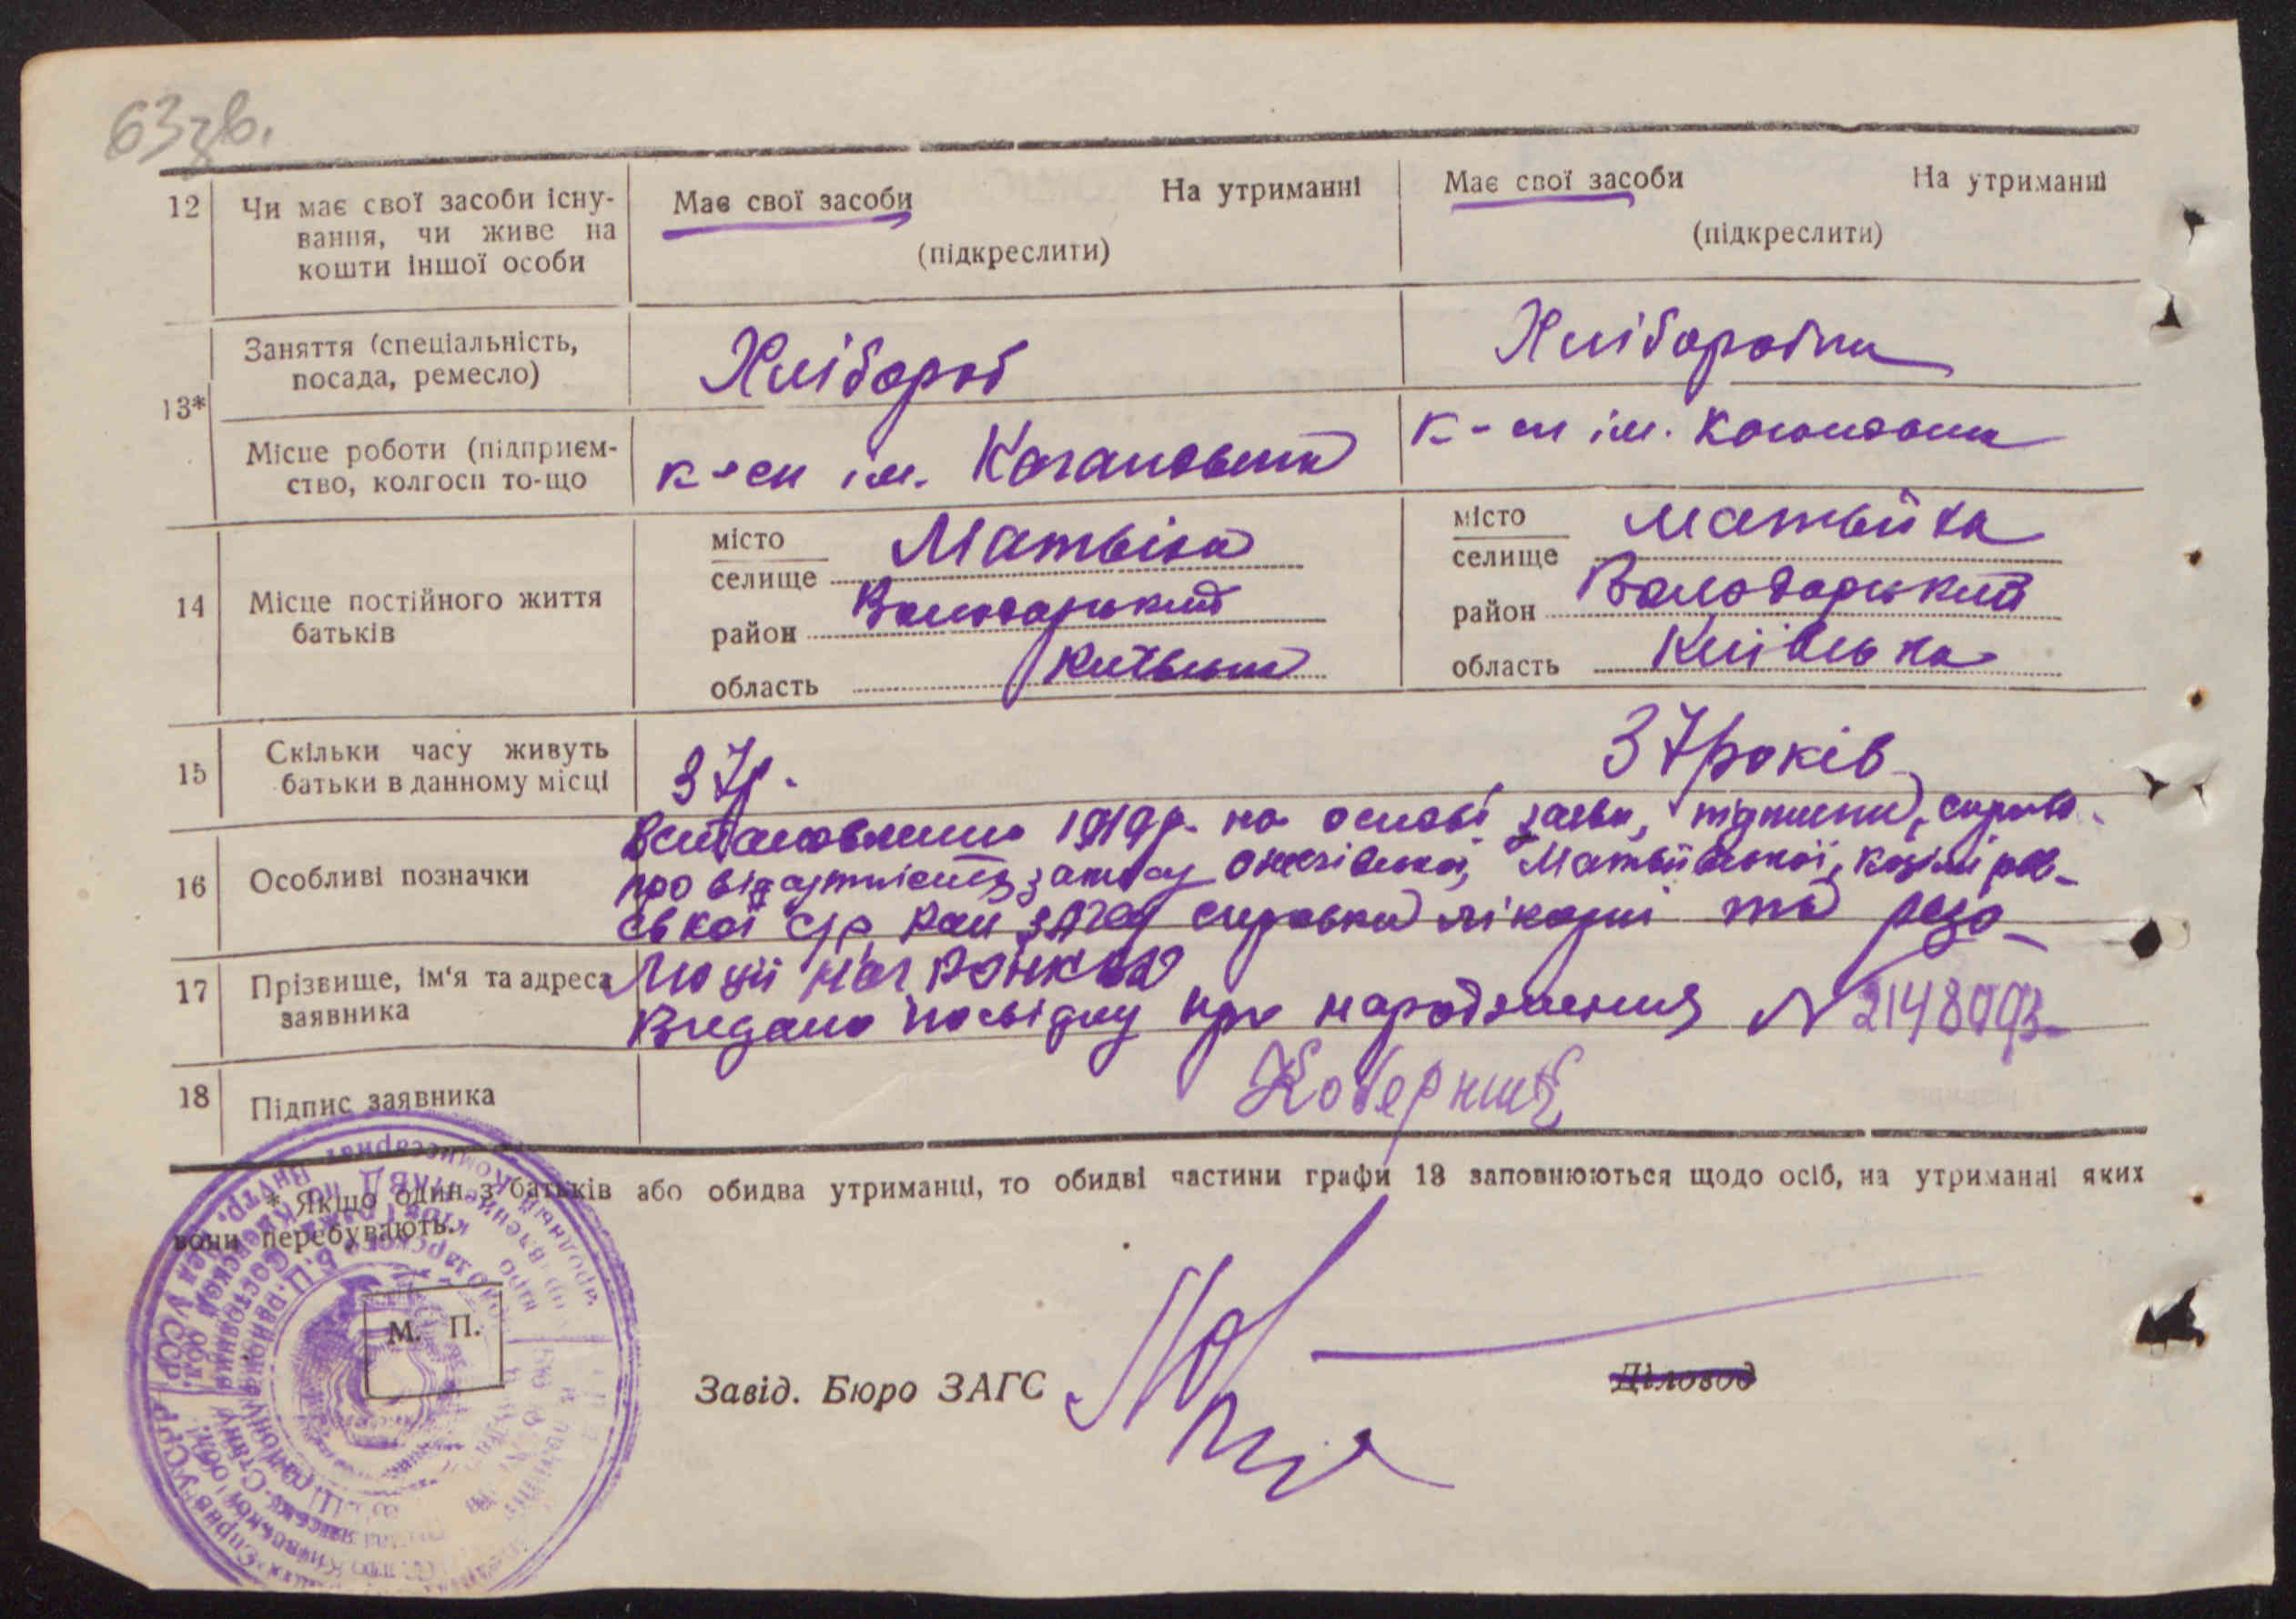 63зв.
12 Чи має свої засоби існу-
вання, чи живе на
кошти іншої особи
Має свої засоби На утриманні
(підкреслити)
Має свої засоби На утриманні
(підкреслити)
13*
Заняття (спеціальність,
посада, ремесло)
Хлібороб
Хліборобка
Місце роботи (підприєм-
ство, колгосп то-що
к-сп ім. Кагановича
к-сп ім. Кагановича
14 Місце постійного життя
батьків
місто
селище Матвіха
район Володарський
область Київська
місто
селище Матвіиха
район Володарський
область Київська
15 Скільки часу живуть
батьки в данному місці
37р.
37років
16 Особливі позначки
Встановлено 1919р. на основі заяви, підписки, справк.
про відсутність запису Матвіївської,
ської с/р, рай ЗАГСу справки лікарні та резо-
17 Прізвище, ім'я та адреса
заявника
люції нач
Видано посвідку про народження N 2148093
18 Підпис заявника
Коберник
* Якщо один з батьків або обидва утриманці, то обидві частини графи 13 заповнюються щодо осіб, на утриманні яких
вони перебувають.
М. П.
Завід. Бюро ЗАГС
Діловод